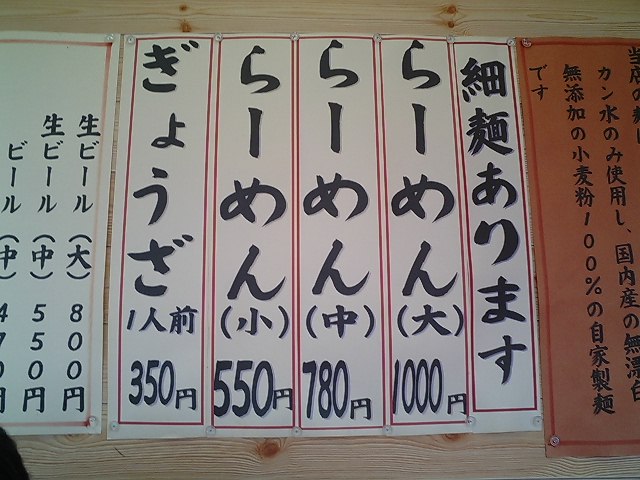 当店の麺は
カン水のみ使用し、国内産の無漂白
無添加の小麦粉100%の自家製麺
です
細麺あります
らーめん(大)1000円
らーめん(中)780円
らーめん(小)550円
ぎょうざ1人前350円
生ビール(大)800円
生ビール(中)550円
ビール(中)470円